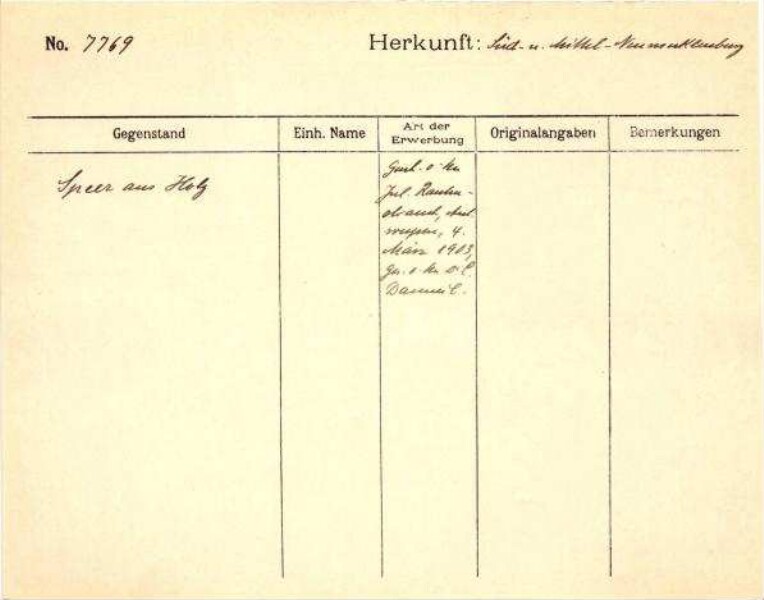 No. 7769
Herkunft: Süd- u. Mittel-Neumecklenburg
Gegenstand
Einh. Name
Art der Erwerbung
Originalangaben
Bemerkungen
Speer aus Holz
Jul. Rauten-
strauch, Ant
werpen, 4.
März 1903,